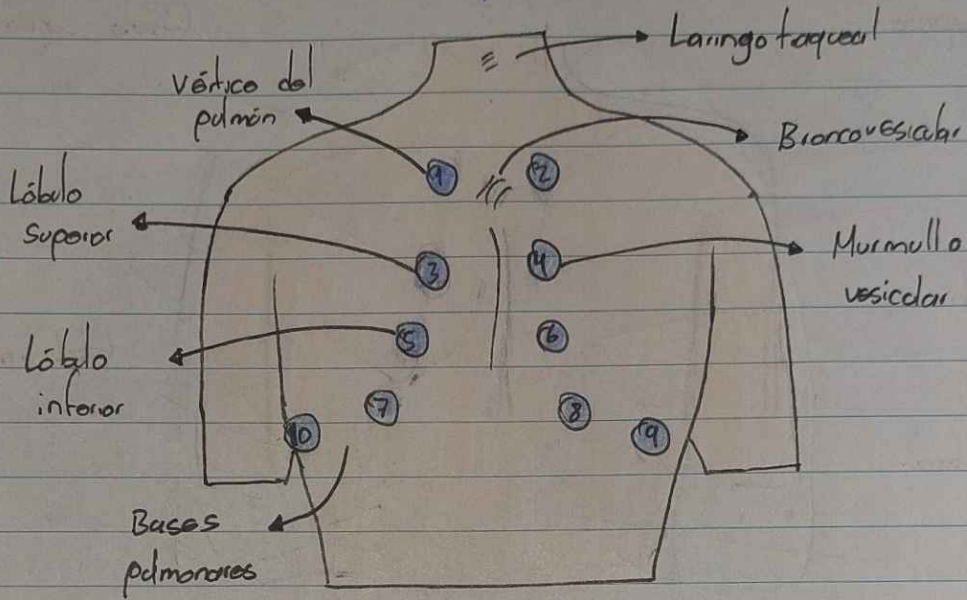 Laringotaqueal
Vértice del
pulmón
Broncovesicular
1
2
Lóbulo
Superior
Murmullo
vesicular
3
4
Lóbulo
inferior
5
6
7
8
10
9
Bases
pulmonares